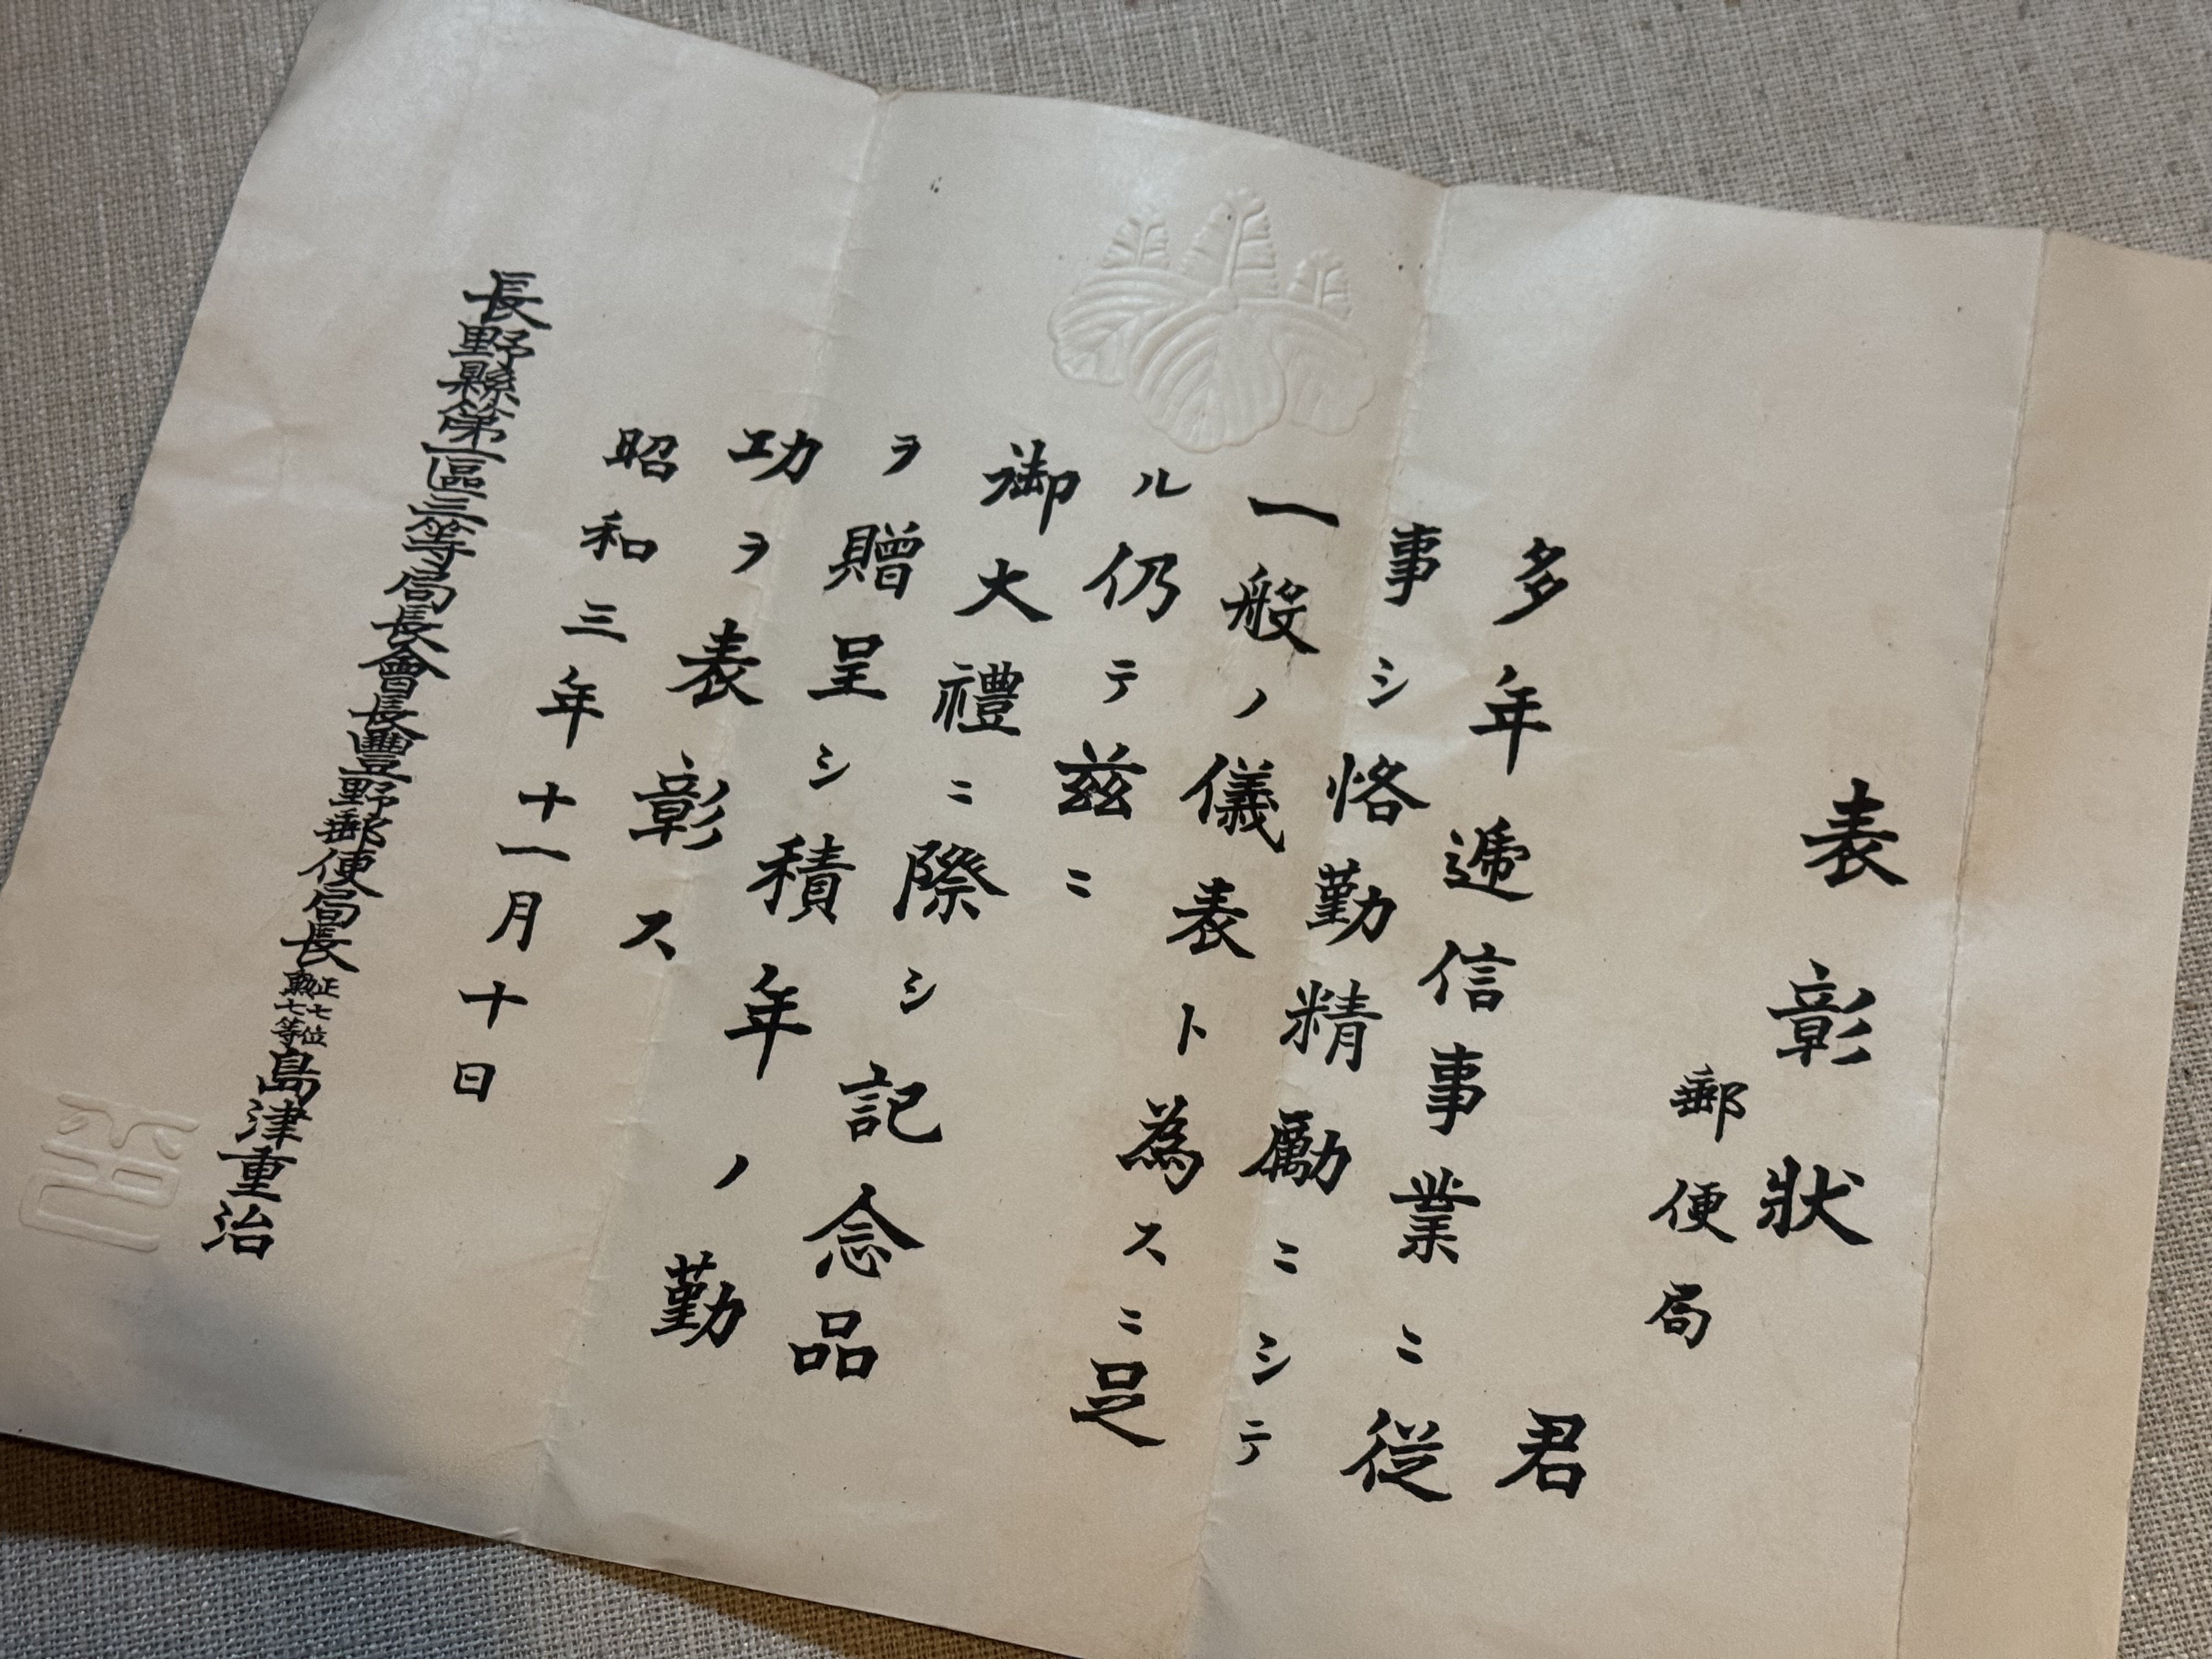 表彰状
郵便局
君
多年遞信事業ニ從
事シ恪勤精勵ニシテ
一般ノ儀表ト為スニ足
ル仍テ茲ニ
御大禮ニ際シ記念品
ヲ贈呈シ積年ノ勤
功ヲ表彰ス
昭和三年十一月十日
長野縣第一區三等局長會長豐野郵便局長正七位勲七等島津重治